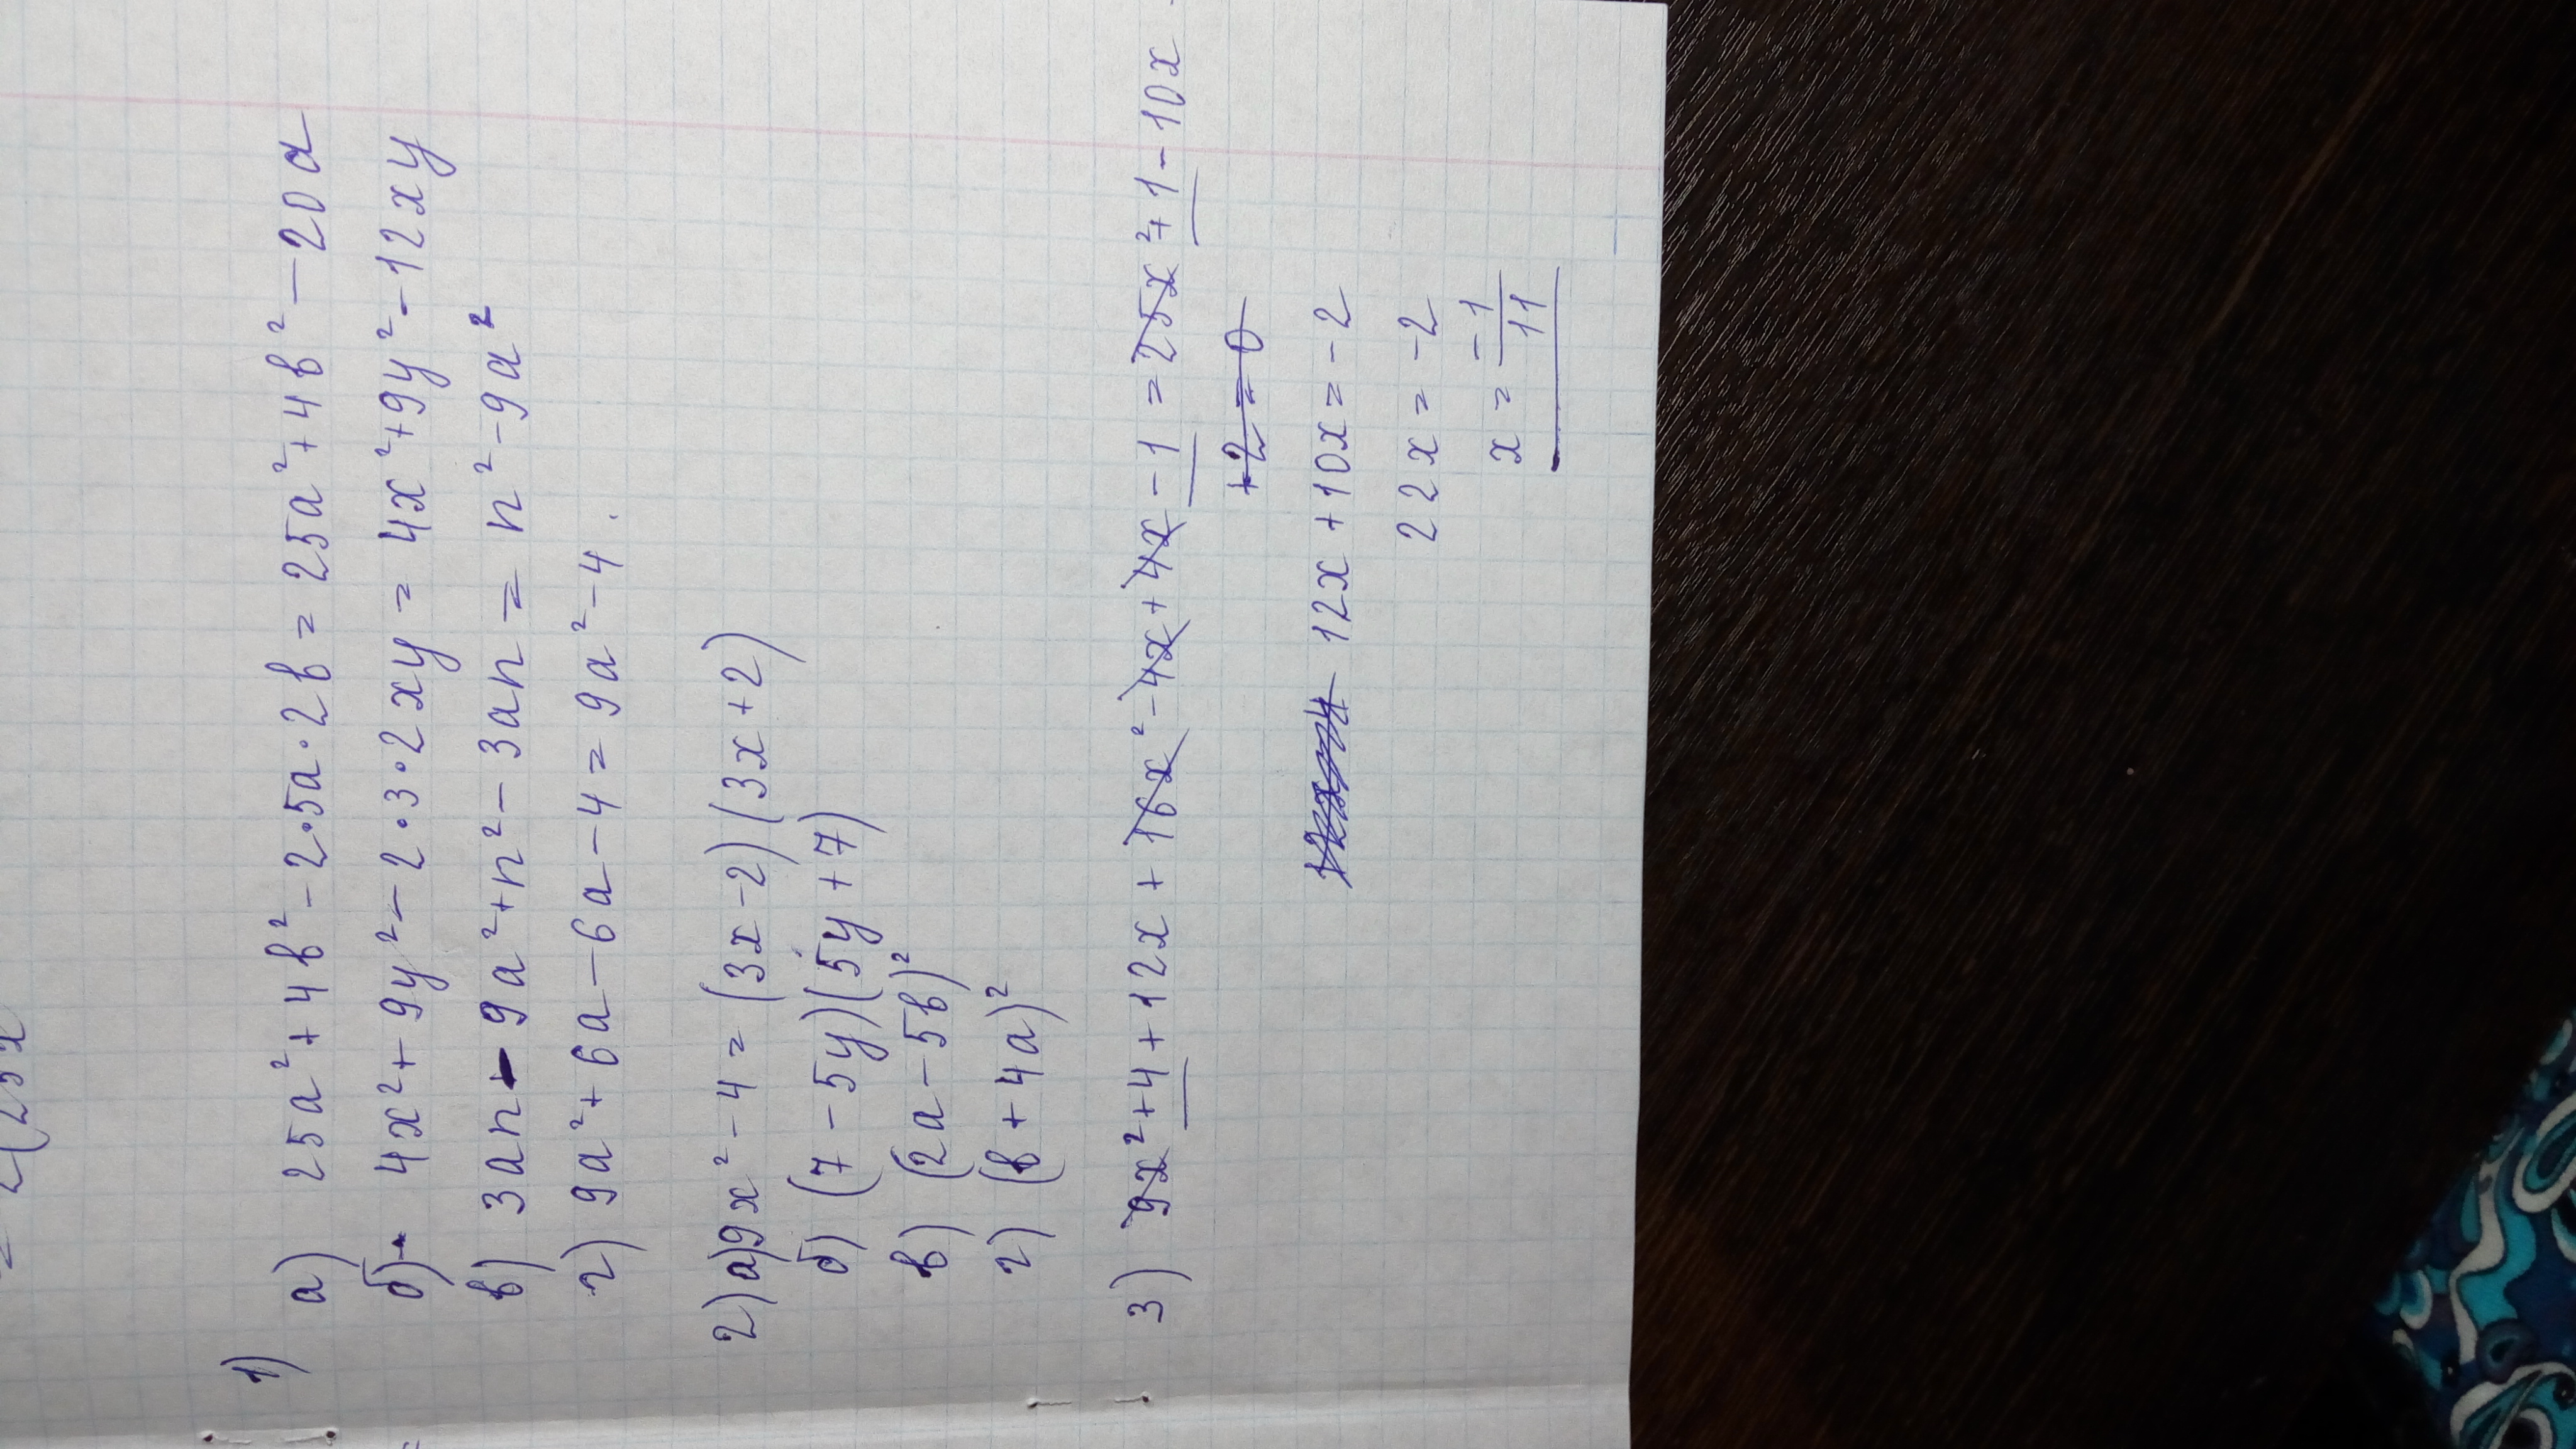 1)
а) 25a² + 4b² - 2·5a·2b = 25a² + 4b² - 20a
б) 4x² + 9y² - 2·3·2xy = 4x² + 9y² - 12xy
в) 3an - 9a² + n² - 3an = n² - 9a²
г) 9a² + 6a - 6a - 4 = 9a² - 4.
2) а) 9x² - 4 = (3x - 2)(3x + 2)
б) (7 - 5y)(5y + 7)
в) (2a - 5b)²
г) (b + 4a)²
3) 9x² + 4 + 12x + 16x² - 4x + 4x - 1 = 25x² + 1 - 10x
+2 = 0
12x + 10x = -2
22x = -2
x = -1/11